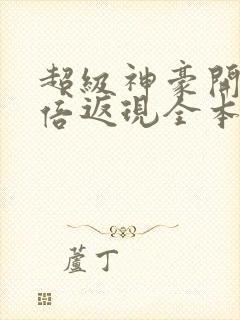 超級神豪開
倍返現全本
蘆丁